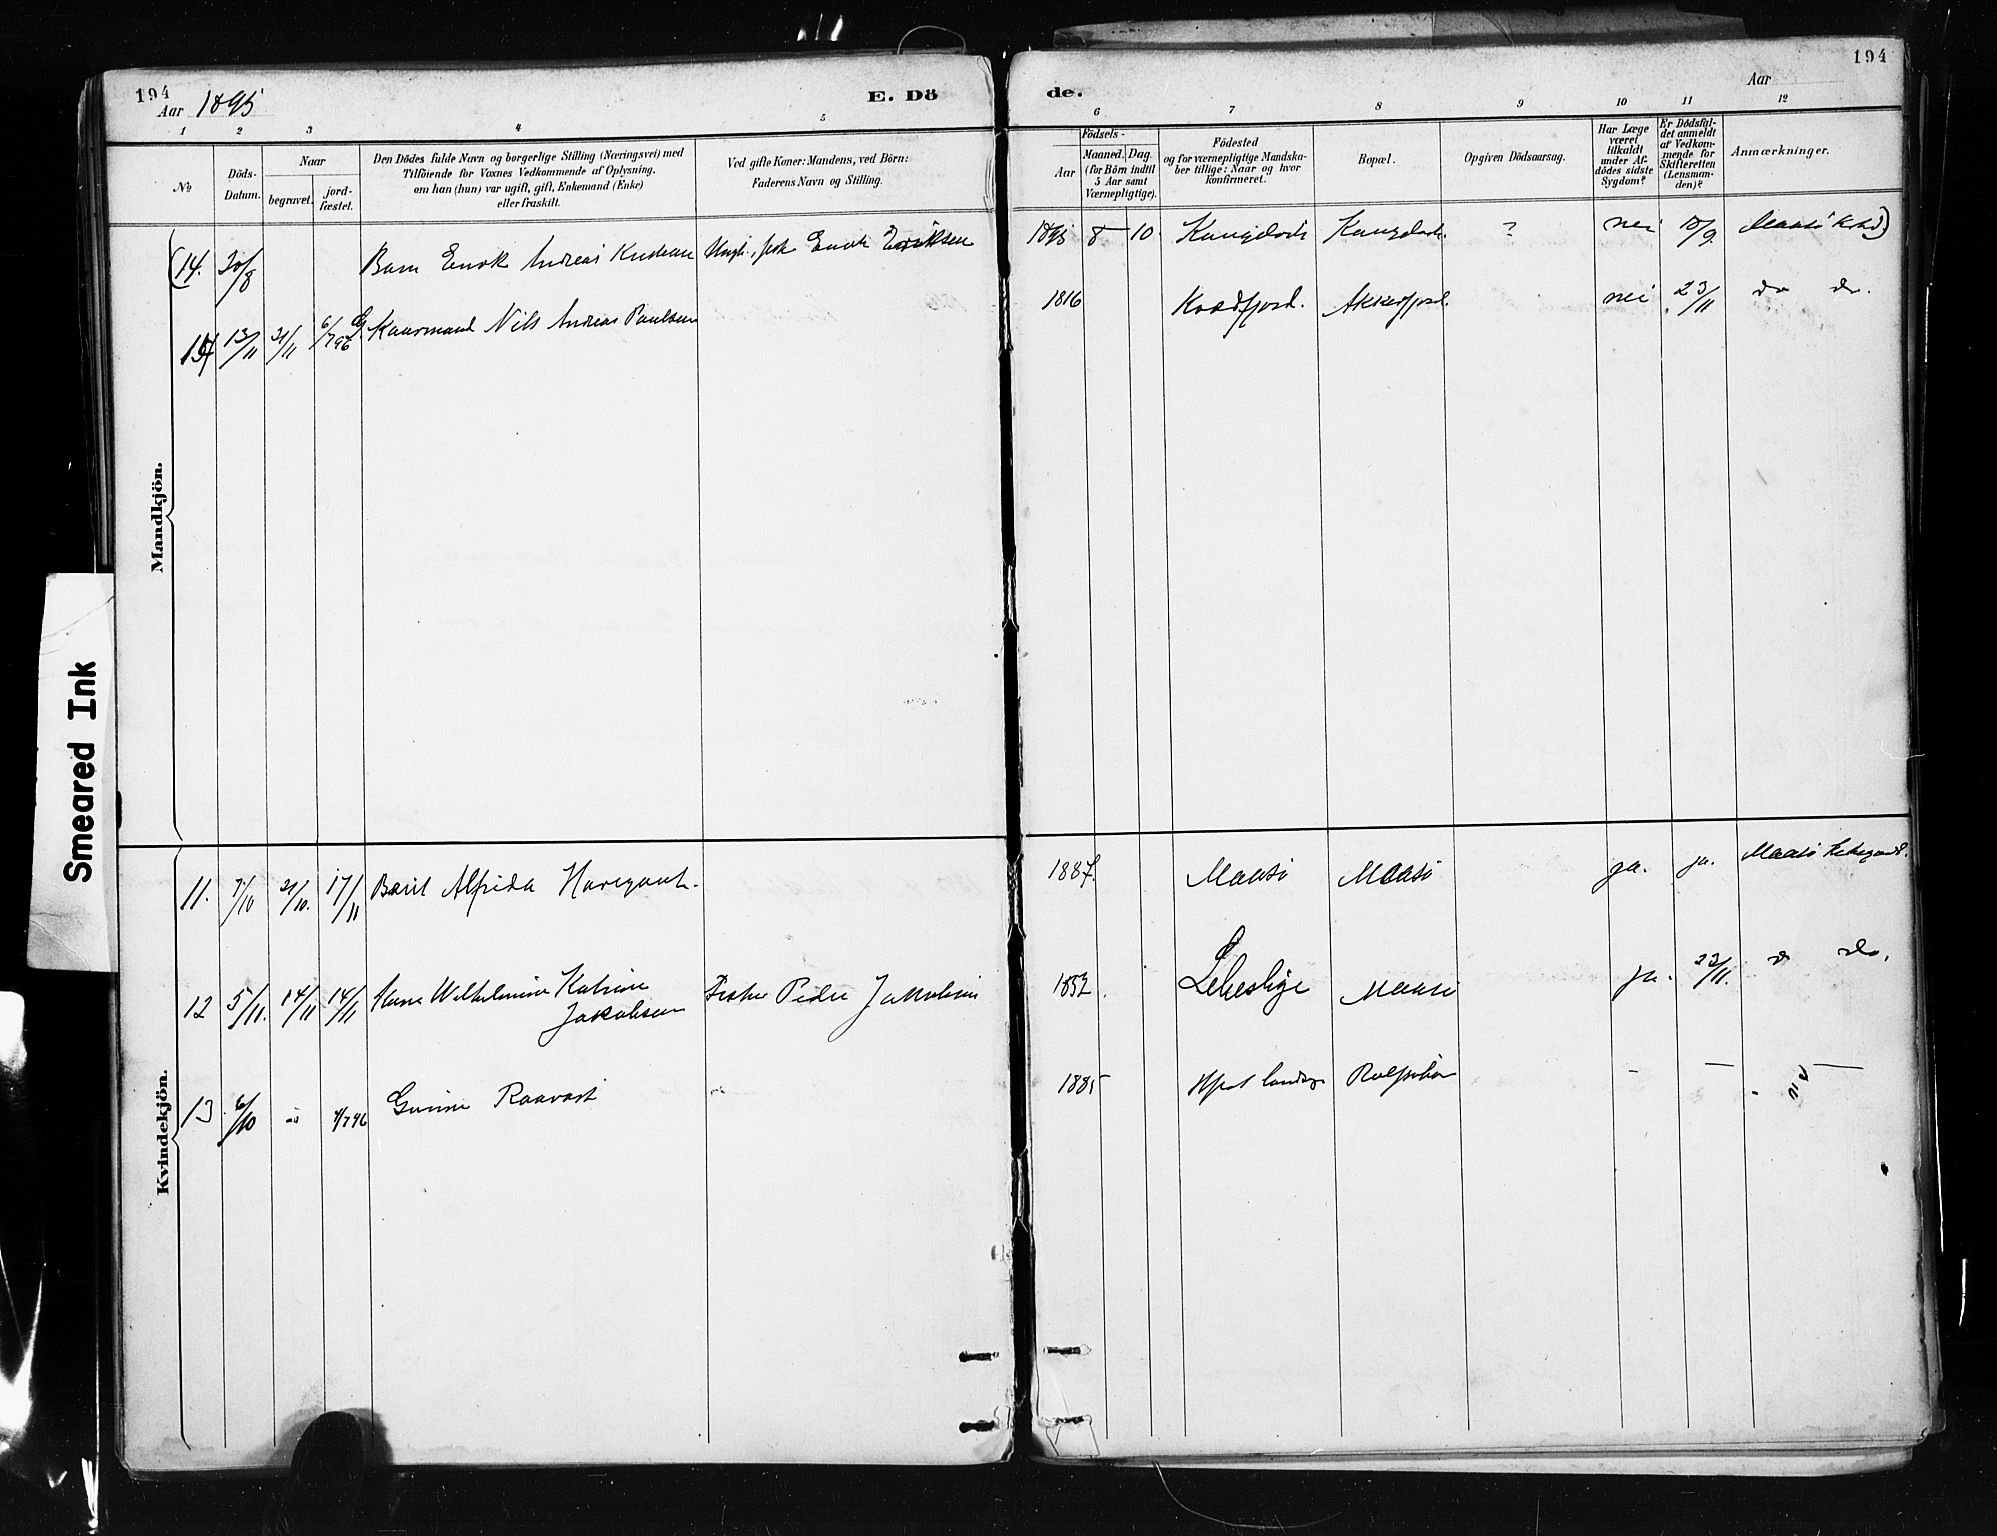 194
Aar 1895
E. Dö
1 2 3 4 5
No
Döds-
Datum.
Naar
begravet.
jord-
fæstet.
Den Dödes fulde Navn og borgerlige Stilling (Næringsvei) med
Tilföiende for Voxnes Vedkommende af Oplysning,
om han (hun) var ugift, gift, Enkemand (Enke)
eller fraskilt.
Ved gifte Koner: Mandens, ved Börn:
Faderens Navn og Stilling.
de.
Aar
194
6 7 8 9 10 11 12
Födsels-
Aar
Maaned.
Dag.
(for Börn indtil
5 Aar samt
Værnepligtige).
Födested
og for værnepligtige Mandska-
ber tillige: Naar og hvor
konfirmeret.
Bopæl.
Opgiven Dödsaarsag.
Har Læge
været
tilkaldt
under Af-
dödes sidste
Sygdom?
Er Dödsfal-
det anmeldt
af Vedkom-
mende for
Skifteretten
(Lensman-
den)?
Anmærkninger.
Mandkjön.
(14. 20/8 Barn Enok Andreas Knutsen Enok Eriksen 1895 8 10 ? nei 18/9 Maasö
15 13/11 21/11 6/7 96 Nils Andreas Paulsen 1816 Kvædfjord. Akkerfjord. nei 23/11 do do.
Kvindekjön.
11. 7/10 21/10. 17/11 Berit Alfrida 1887. Maasö Maasö ja. ja. Maasö
12 5/11. 14/11 14/11 Wilhelmine Katrine
Jakobsen
Peder Jakobsen 1852. Lebesby Maasö ja. 23/11. do.
13 6/10 4/7 96 Raavast 1885 — —
Smeared Ink